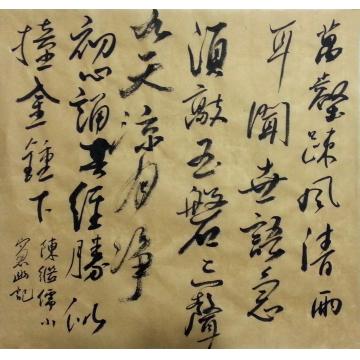 萬壑踈風清兩
耳聞世語急
須敲玉磬三聲
九天涼月淨
初心誦其經勝似
撞金鐘下
陳繼儒小
窗幽記